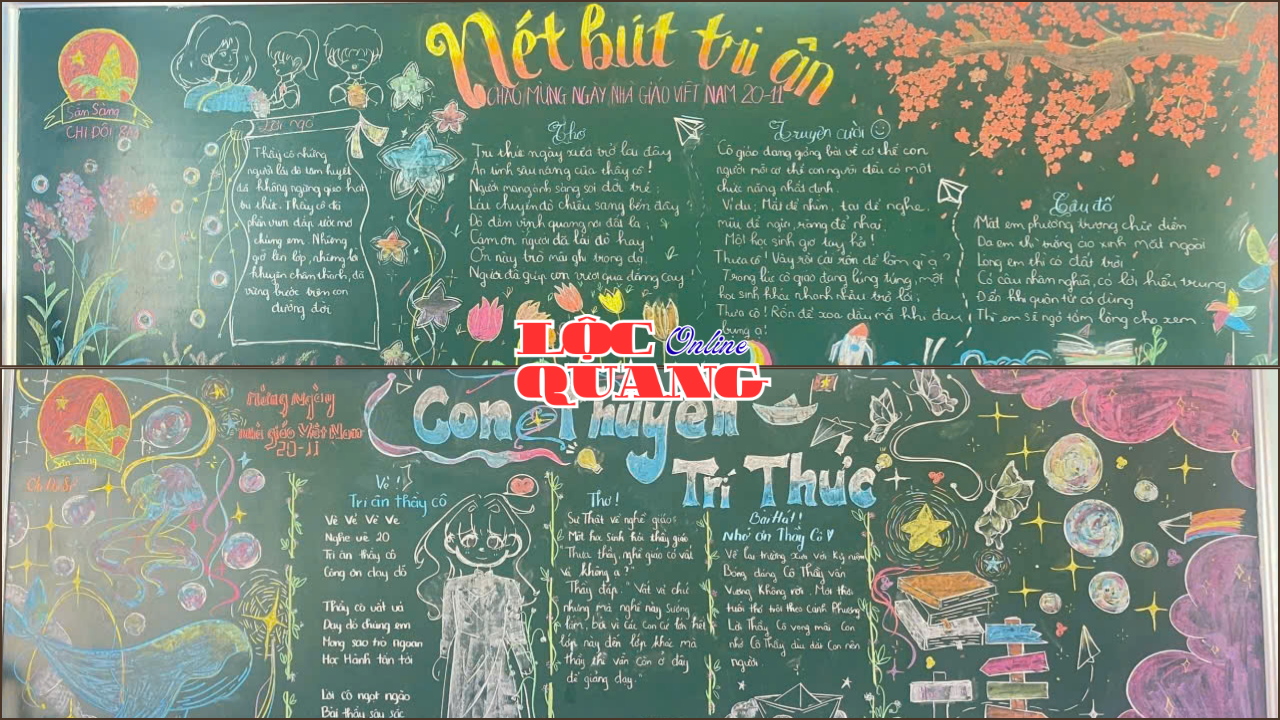 Nét bút tri ân
CHÀO MỪNG NGÀY NHÀ GIÁO VIỆT NAM 20-11
Sẵn Sàng
CHI ĐỘI
Lời ngỏ
Thầy cô những
người lái đò tâm huyết
đã không ngừng gieo hạt
tri thức. Thầy cô đã
phần vun đắp ước mơ
chúng em. Những
giờ lên lớp, những lời
khuyên chân thành, đã
vững bước trên con
đường đời
Thơ
Tri thức ngày xưa trở lại đây
Ân tình sâu nặng của thầy cô!
Người mang ánh sáng soi đời trẻ;
Lái chuyến đò chiều sang bến đây
Đò đến vinh quang nơi đất lạ;
Cảm ơn người đã lái đò hay
Ơn này trò mãi ghi trong dạ
Người đã giúp con vượt qua đắng cay
Truyện cười
Cô giáo đang giảng bài về cơ thể con
người mỗi cơ thể con người đều có một
chức năng nhất định.
Ví dụ: Mắt để nhìn, tai để nghe,
mũi để ngửi, răng để nhai.
Một học sinh giơ tay hỏi!
Thưa cô! Vậy rốn cái rốn để làm gì ạ?
Trong lúc cô giáo đang lúng túng, một
học sinh khác nhanh nhảu trả lời:
Thưa cô! Rốn để xoa dầu mỗi khi đau
bụng ạ!
Câu đố
Mặt em phương trượng chữ điền
Da em thì trắng áo xinh mặc ngoài
Lòng em thì có đất trời
Có câu nhân nghĩa, có lời hiếu trung
Đến khi quân tử có dùng
Thì em sẽ ngỏ tấm lòng cho xem.
LỘC Online
QUANG
Con Thuyền
Trí Thức
Sẵn Sàng
Mừng Ngày
nhà giáo Việt Nam
20-11
Vè!
Tri ân thầy cô
Vè Vẻ Vè Ve
Nghe vè 20
Tri ân thầy cô
Công ơn dạy dỗ
Thầy cô vất vả
Dạy dỗ chúng em
Mong sao trò ngoan
Học Hành tấn tới
Lời cô ngọt ngào
Bài thầy sâu sắc
Thơ!
Sự Thật về nghề giáo
Một học sinh hỏi thầy giáo
Thưa thầy, nghề giáo có vất
vả không ạ?"
Thầy đáp: "Vất vả chứ
nhưng mà nghề này sướng
lắm, bởi vì các con cứ lớn hết
lớp này đến lớp khác mà
thầy thì vẫn còn ở đây
để giảng dạy."
Bài Hát!
Nhớ Ơn Thầy Cô
Về lại trường xưa với kỷ niệm
Bóng dáng Cô Thầy vẫn
Vương không rời. Một thời
tuổi thơ trôi theo cánh Phượng
Lời Thầy Cô vọng mãi Con
nhớ Cô Thầy dìu dắt Con nên
người